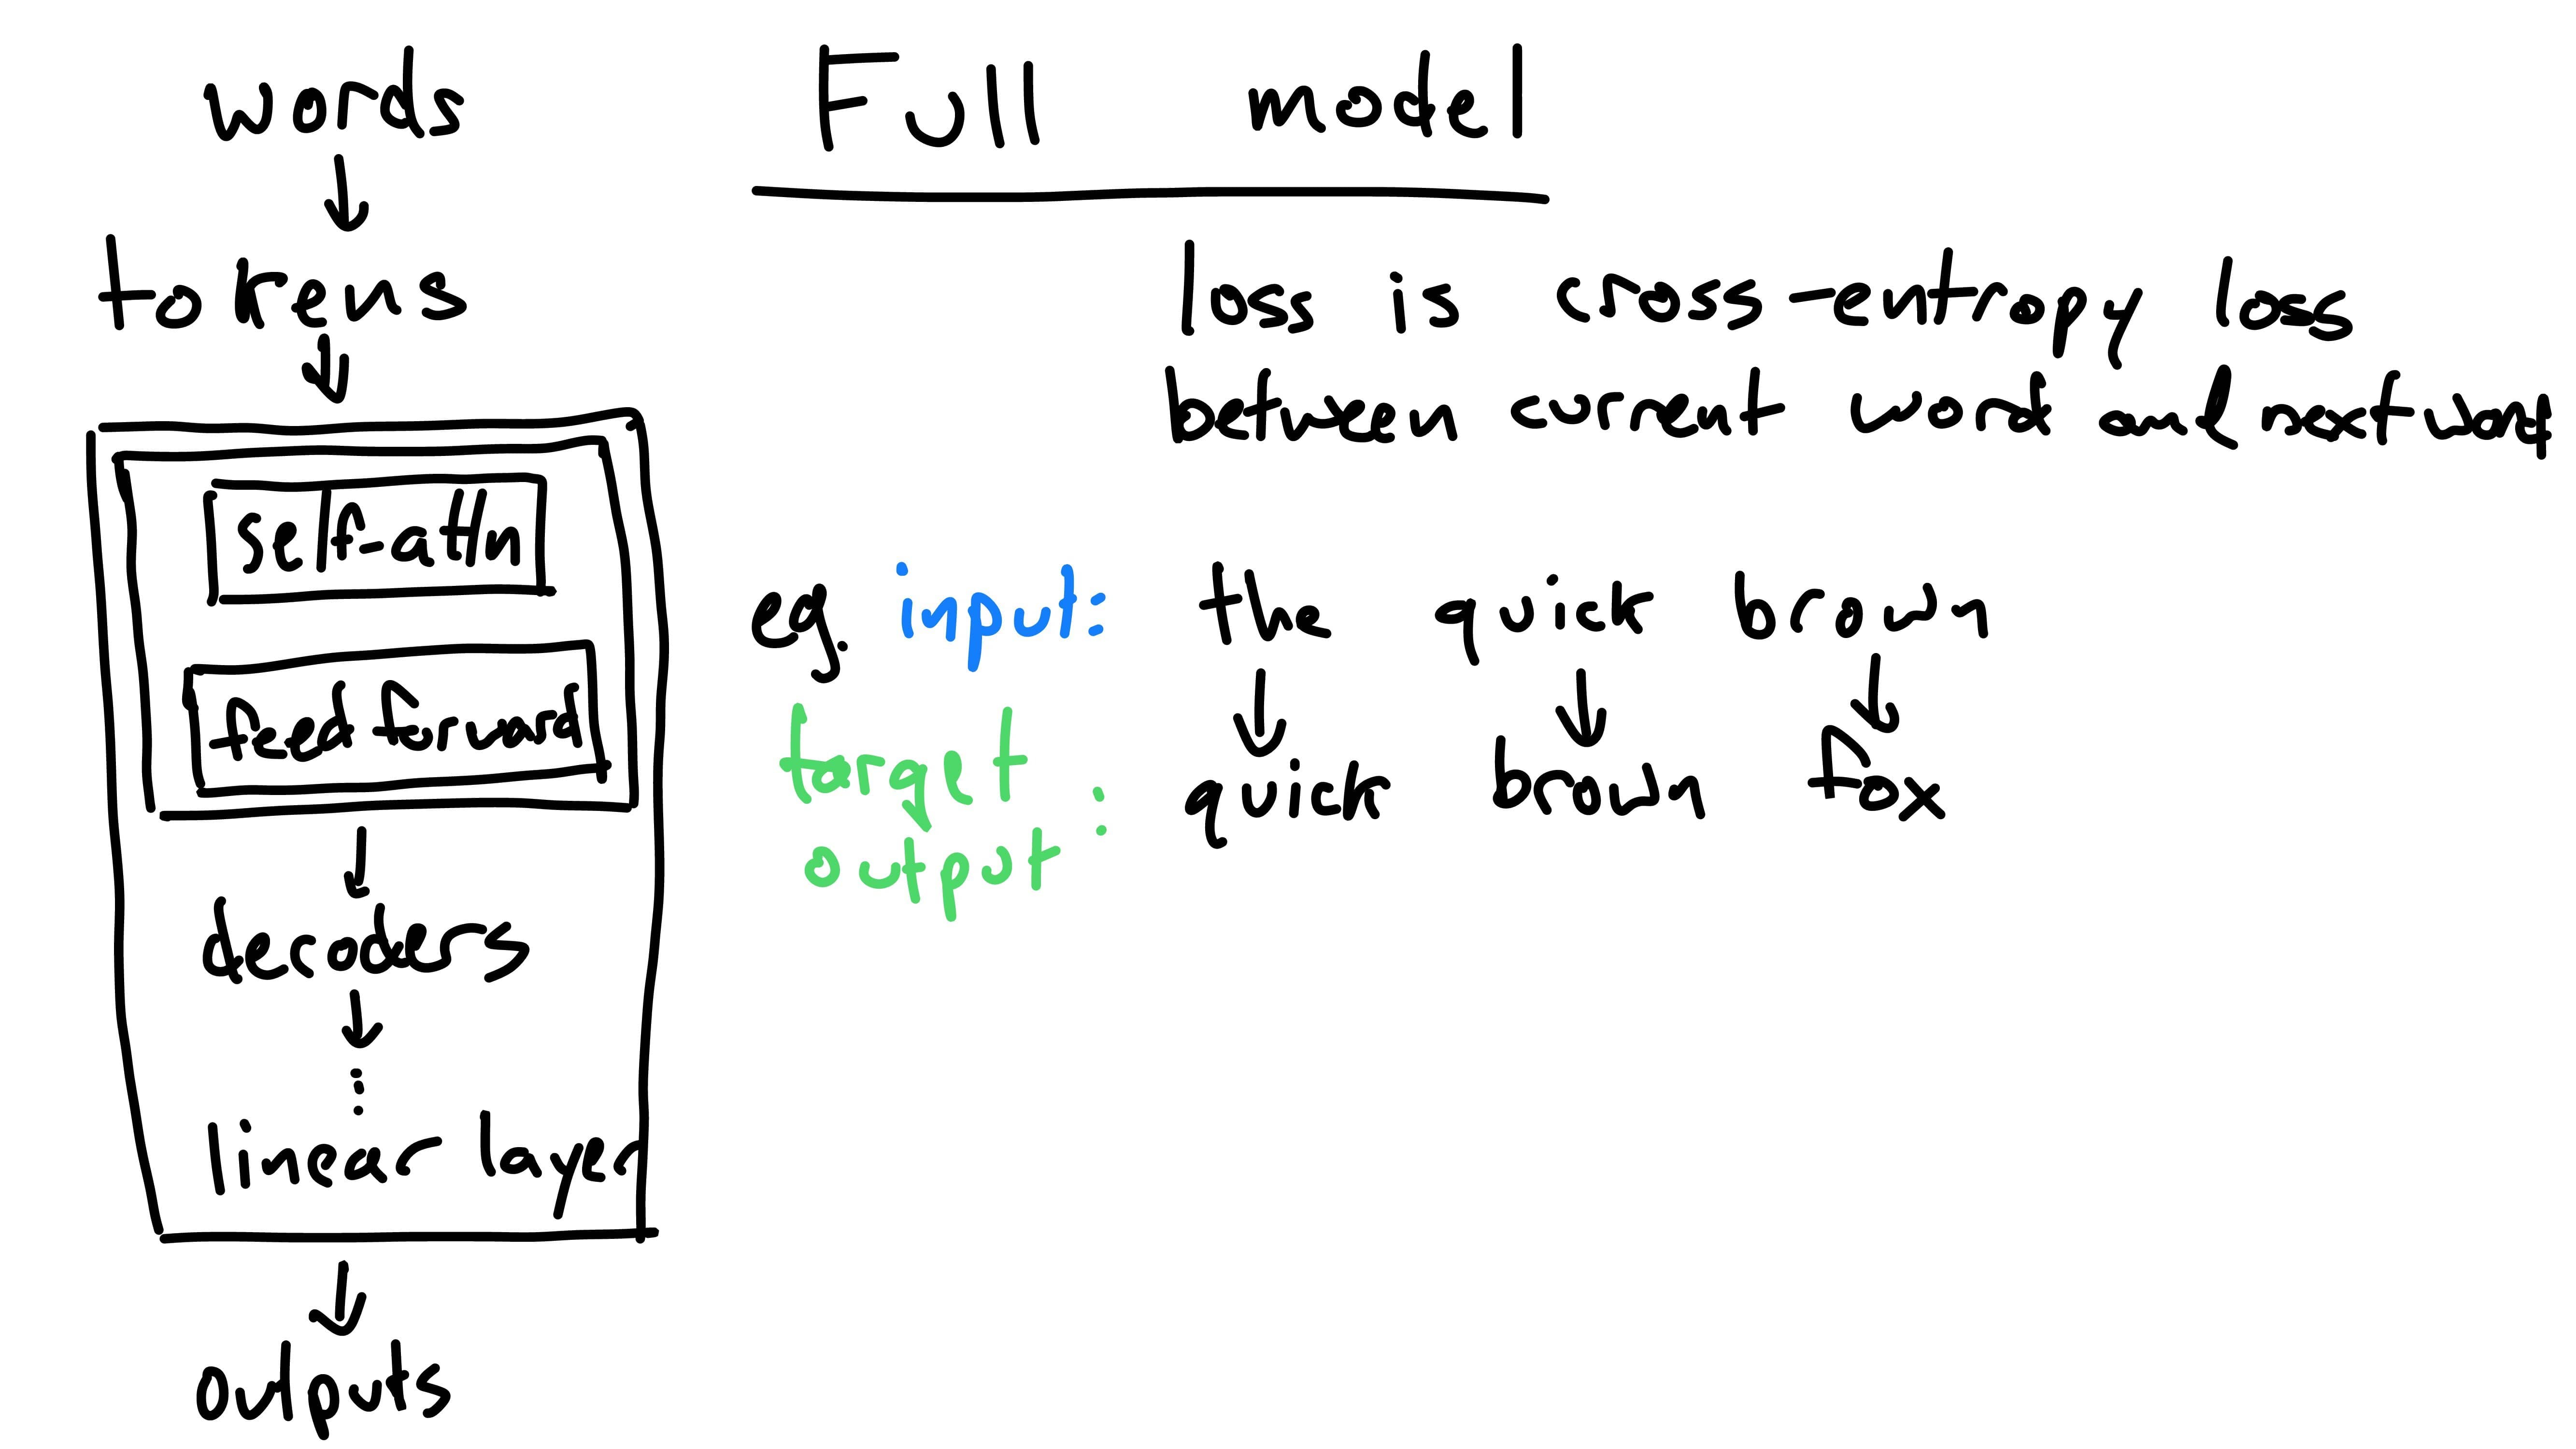 words
tokens
self-attn
feed forward
decoders
linear layer
outputs
Full model
loss is cross-entropy loss
between current word and next word
eg. input: the quick brown
target
output : quick brown fox